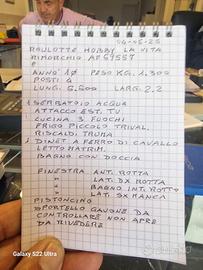 04-06-25
ROULOTTE HOBBY LA VITA
RIMORCHIO AF69557
ANNO 10 PESO KG. 1,300
POSTI 4
LUNG. 6.600 LARG. 2,2
1 SERBATOIO ACQUA
ATTACCO EST. TV
CUCINA 3 FUOCHI
FRIGO PICCOLO TRIVAL.
RISCALD. TRUMA
1 DINET A FERRO DI CAVALLO
LETTO MATRIM.
BAGNO CON DOCCIA
FINESTRA ANT. ROTTA
" LAT. DX ROTTA
" BAGNO INT. ROTTO
" LAT. SX MANCA
PISTONCINO
SPORTELLO GAVONE DA
CONTROLLARE NON APRE
DA RIVEDERE
Galaxy S22 Ultra